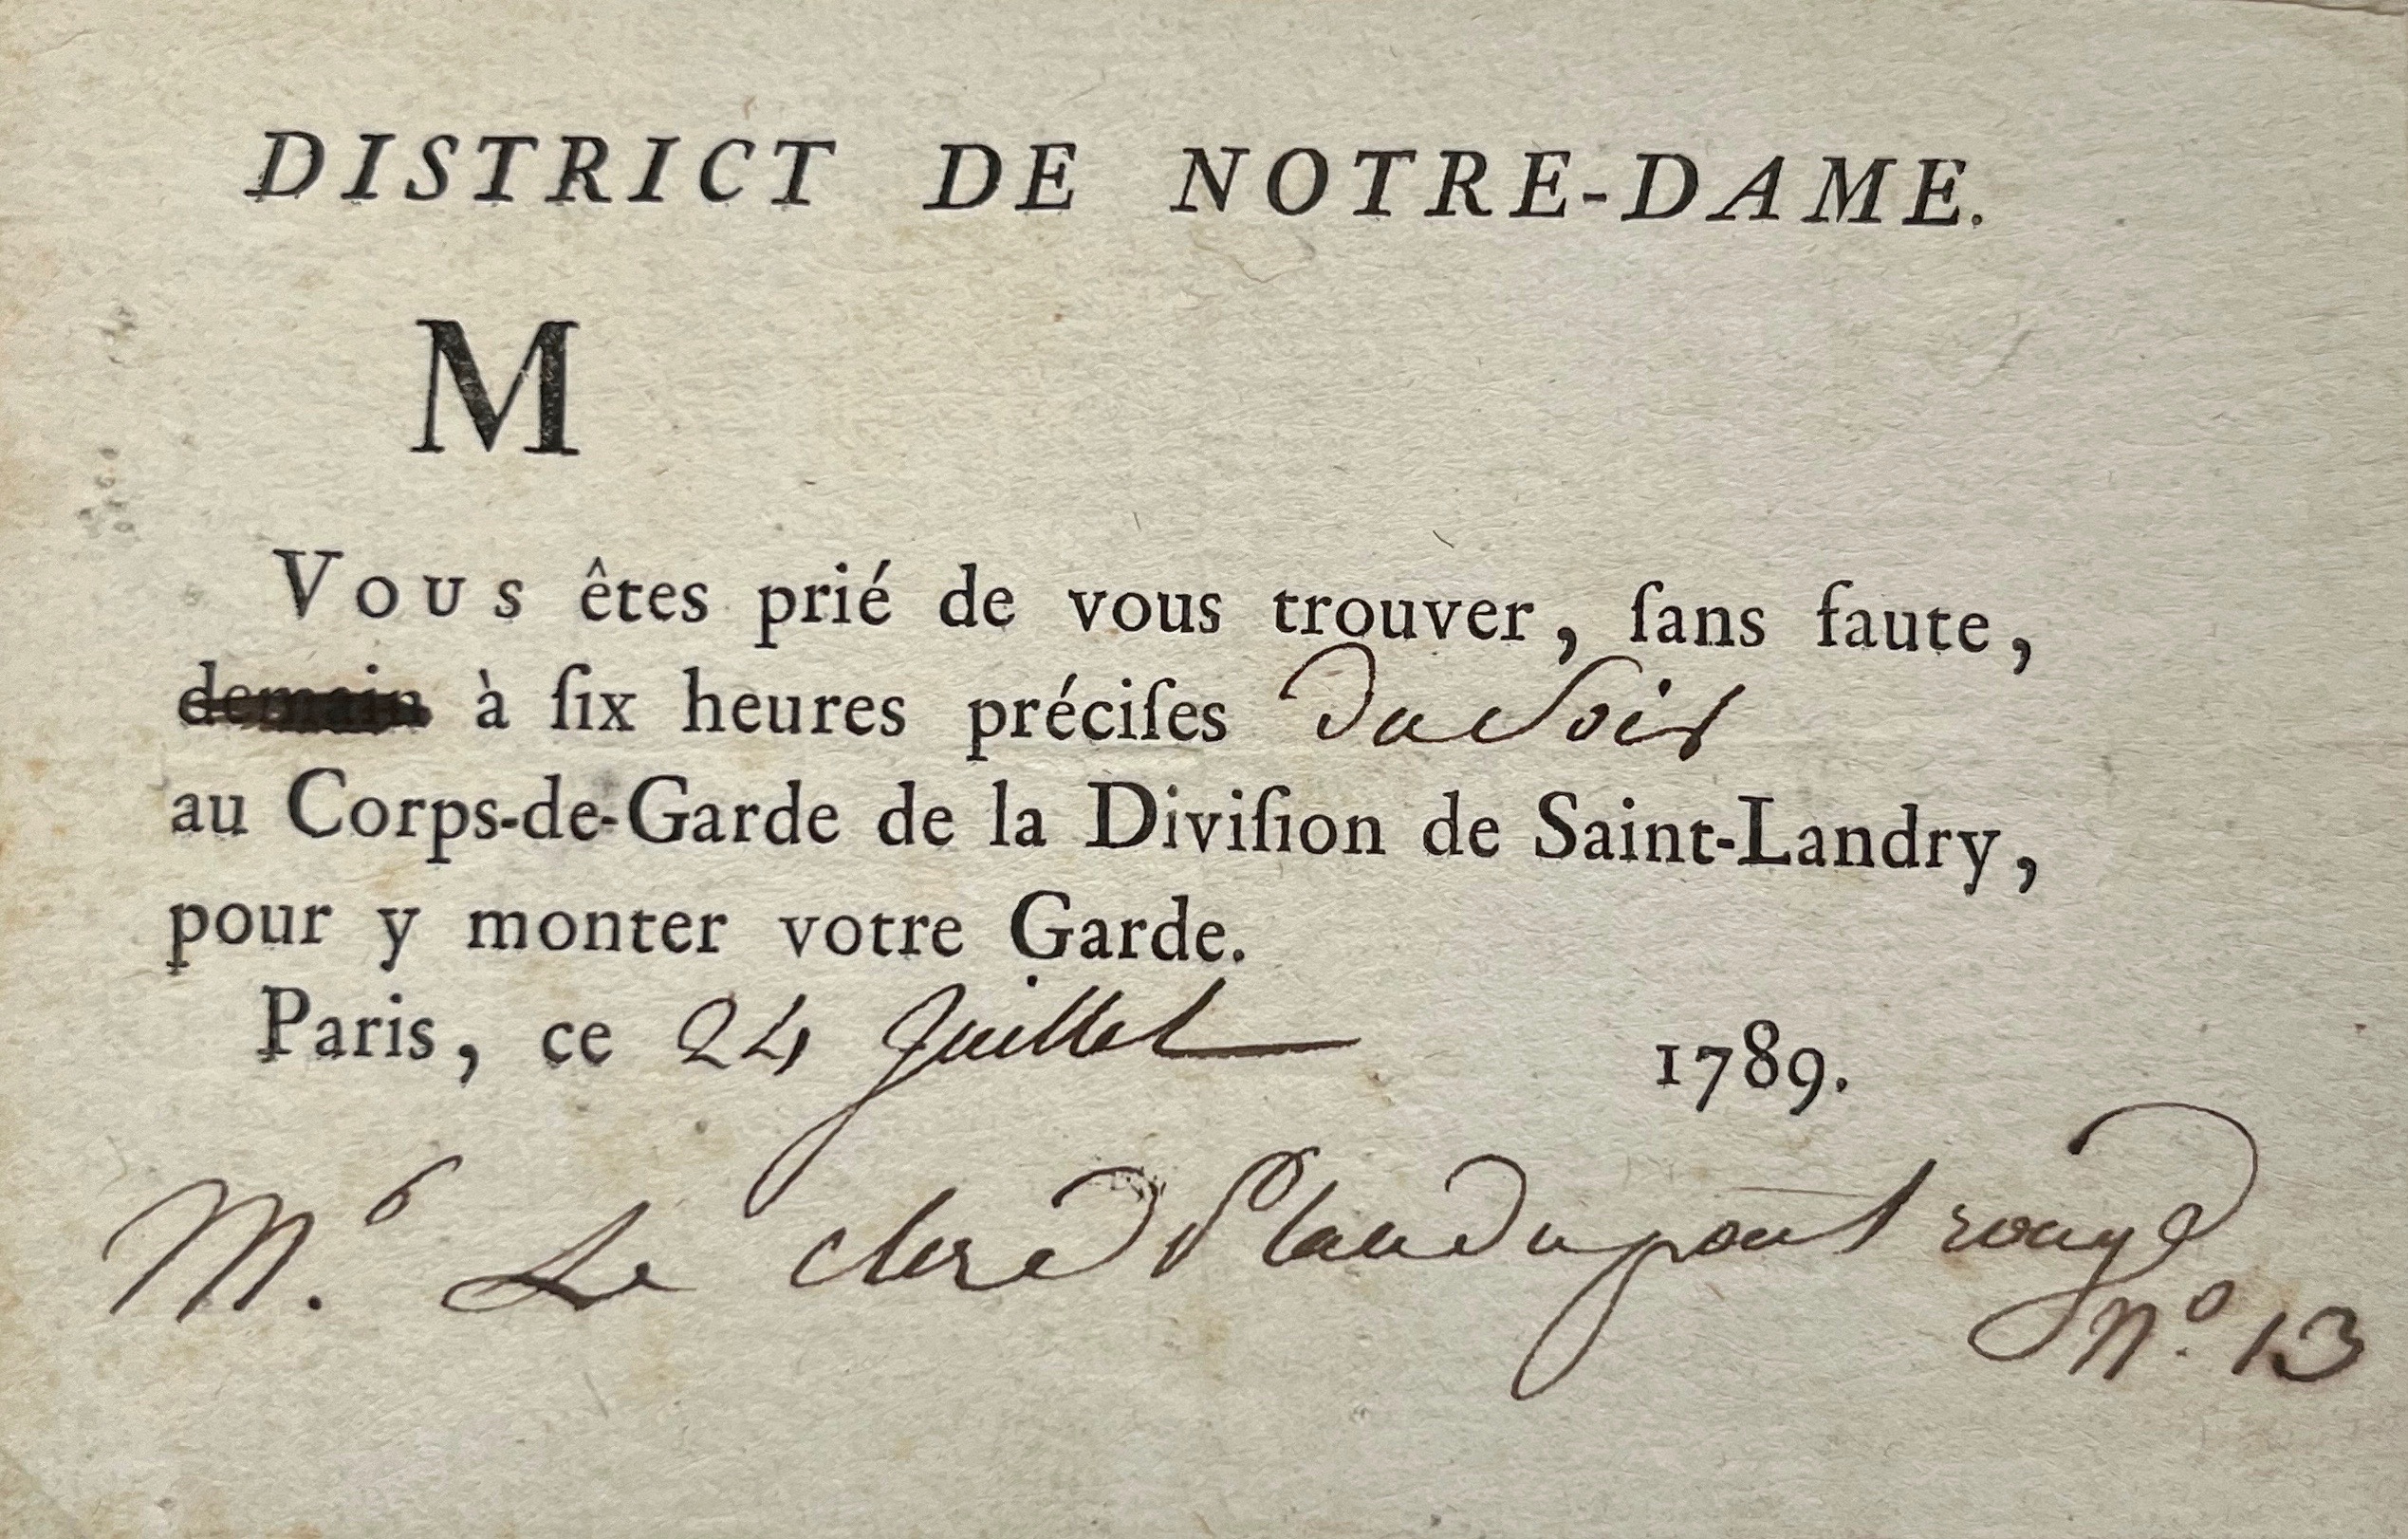 DISTRICT DE NOTRE-DAME.
M
Vous êtes prié de vous trouver, ſans faute,
demain à ſix heures préciſes du Soir
au Corps-de-Garde de la Diviſion de Saint-Landry,
pour y monter votre Garde.
Paris, ce 24 Juillet 1789.
Mr. Le clerc du pont rouge
no. 13